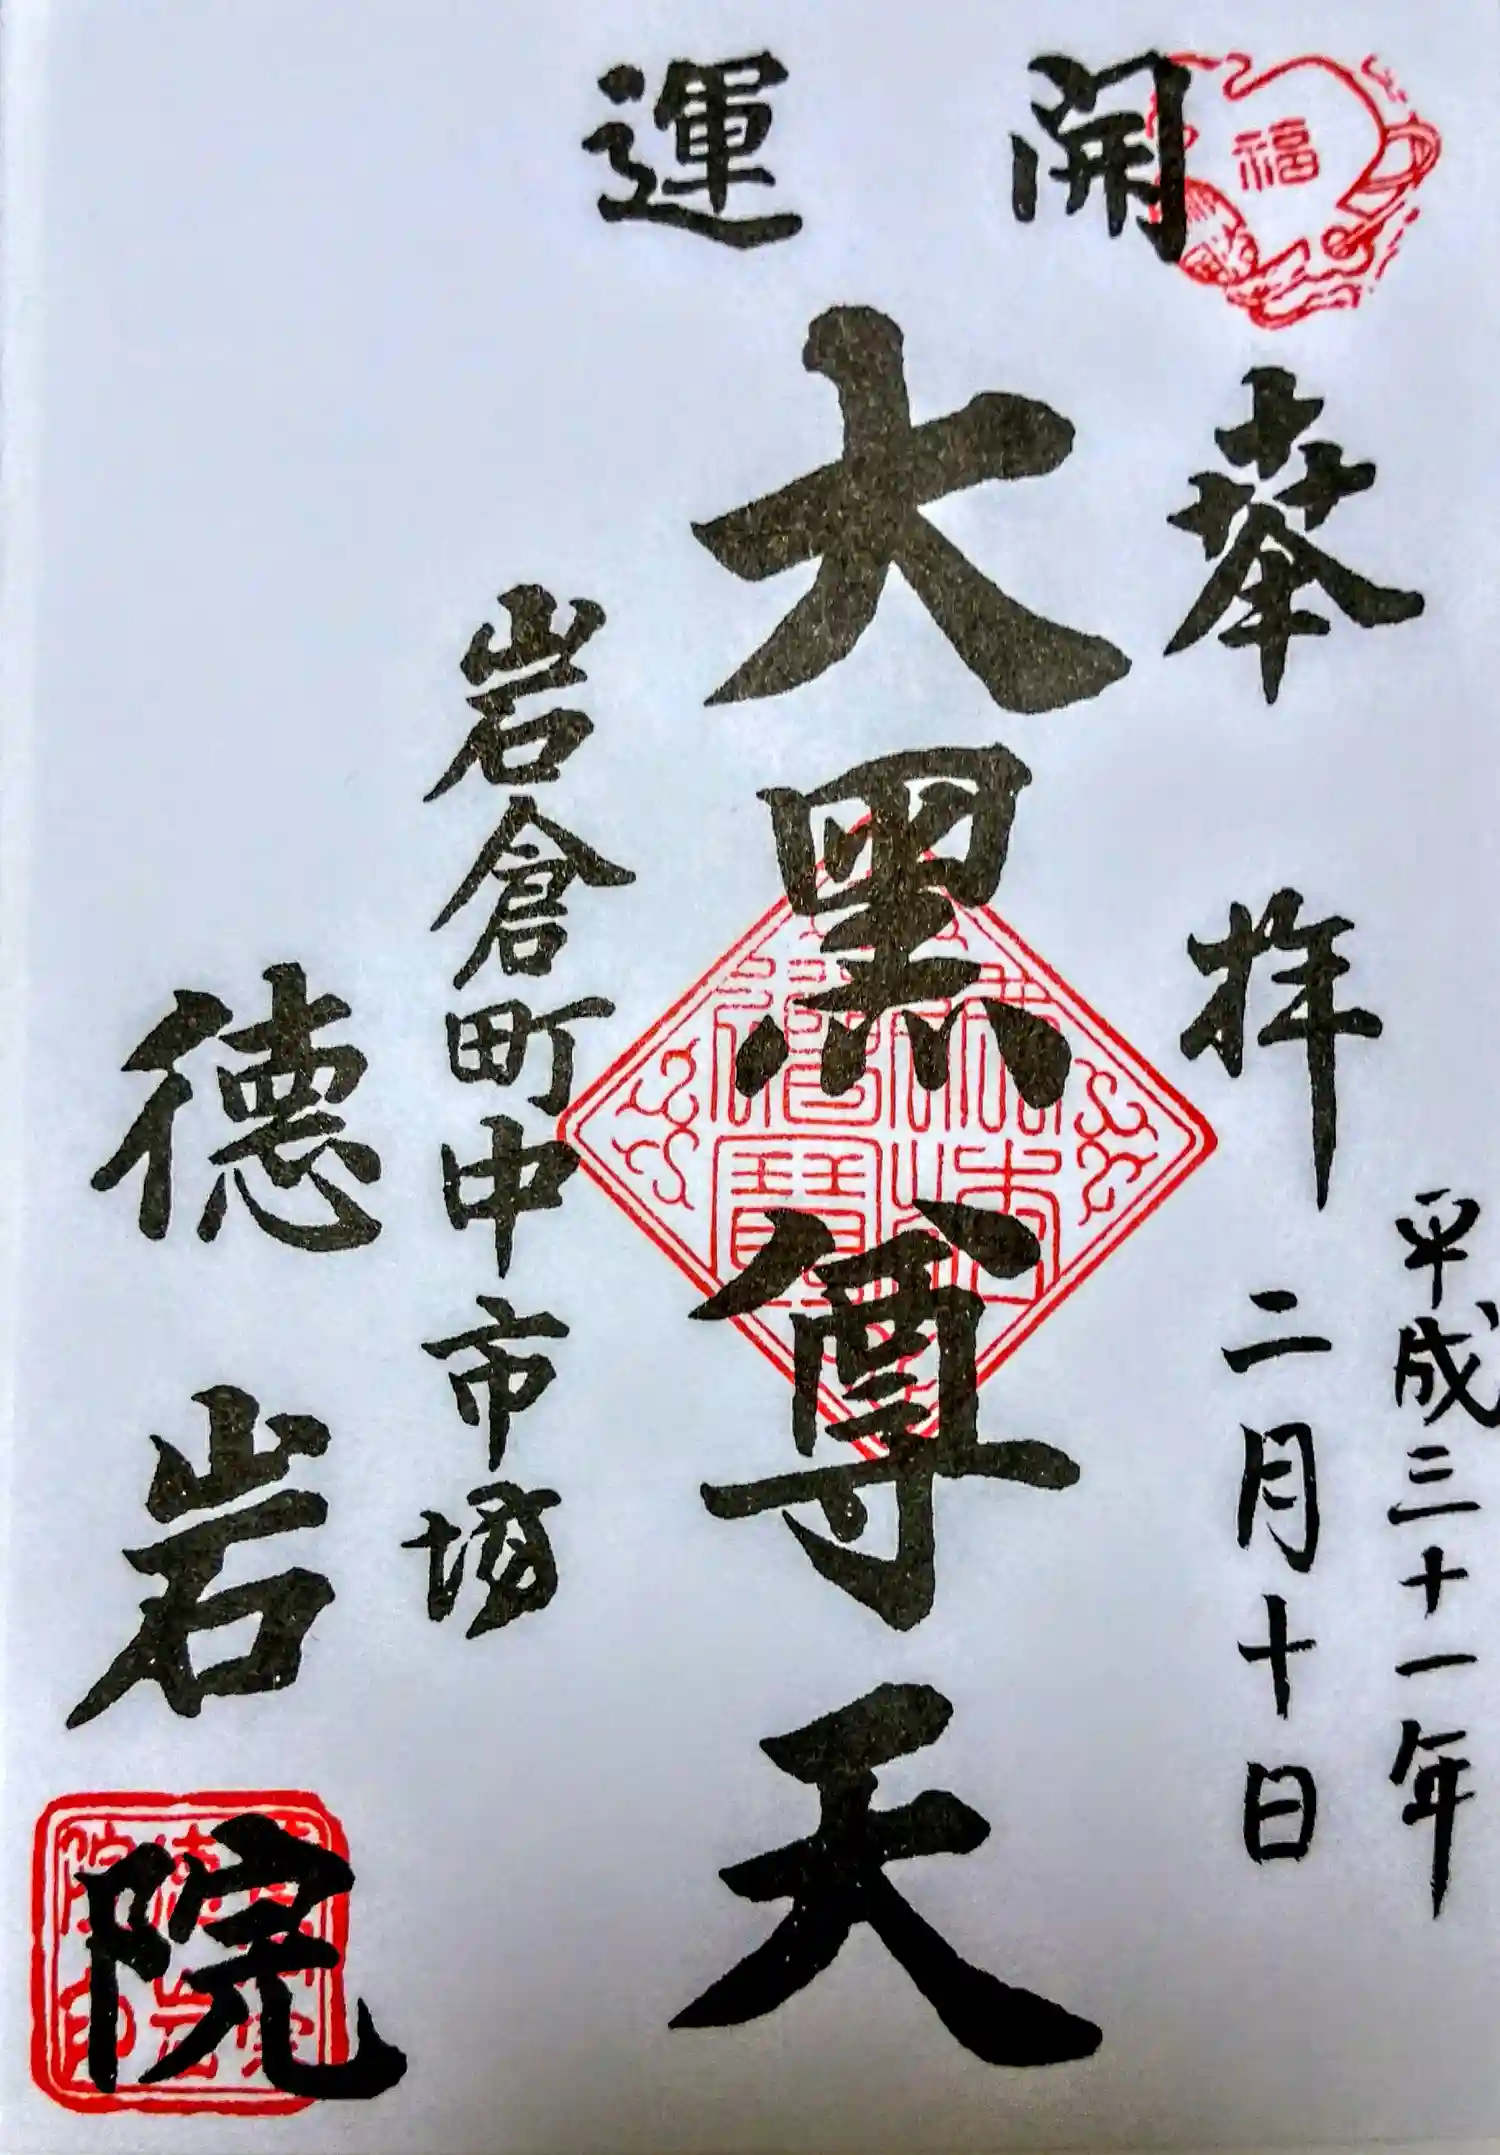 開運
奉拝
平成三十一年
二月十日
大黒尊天
岩倉町中市場
徳岩院
福